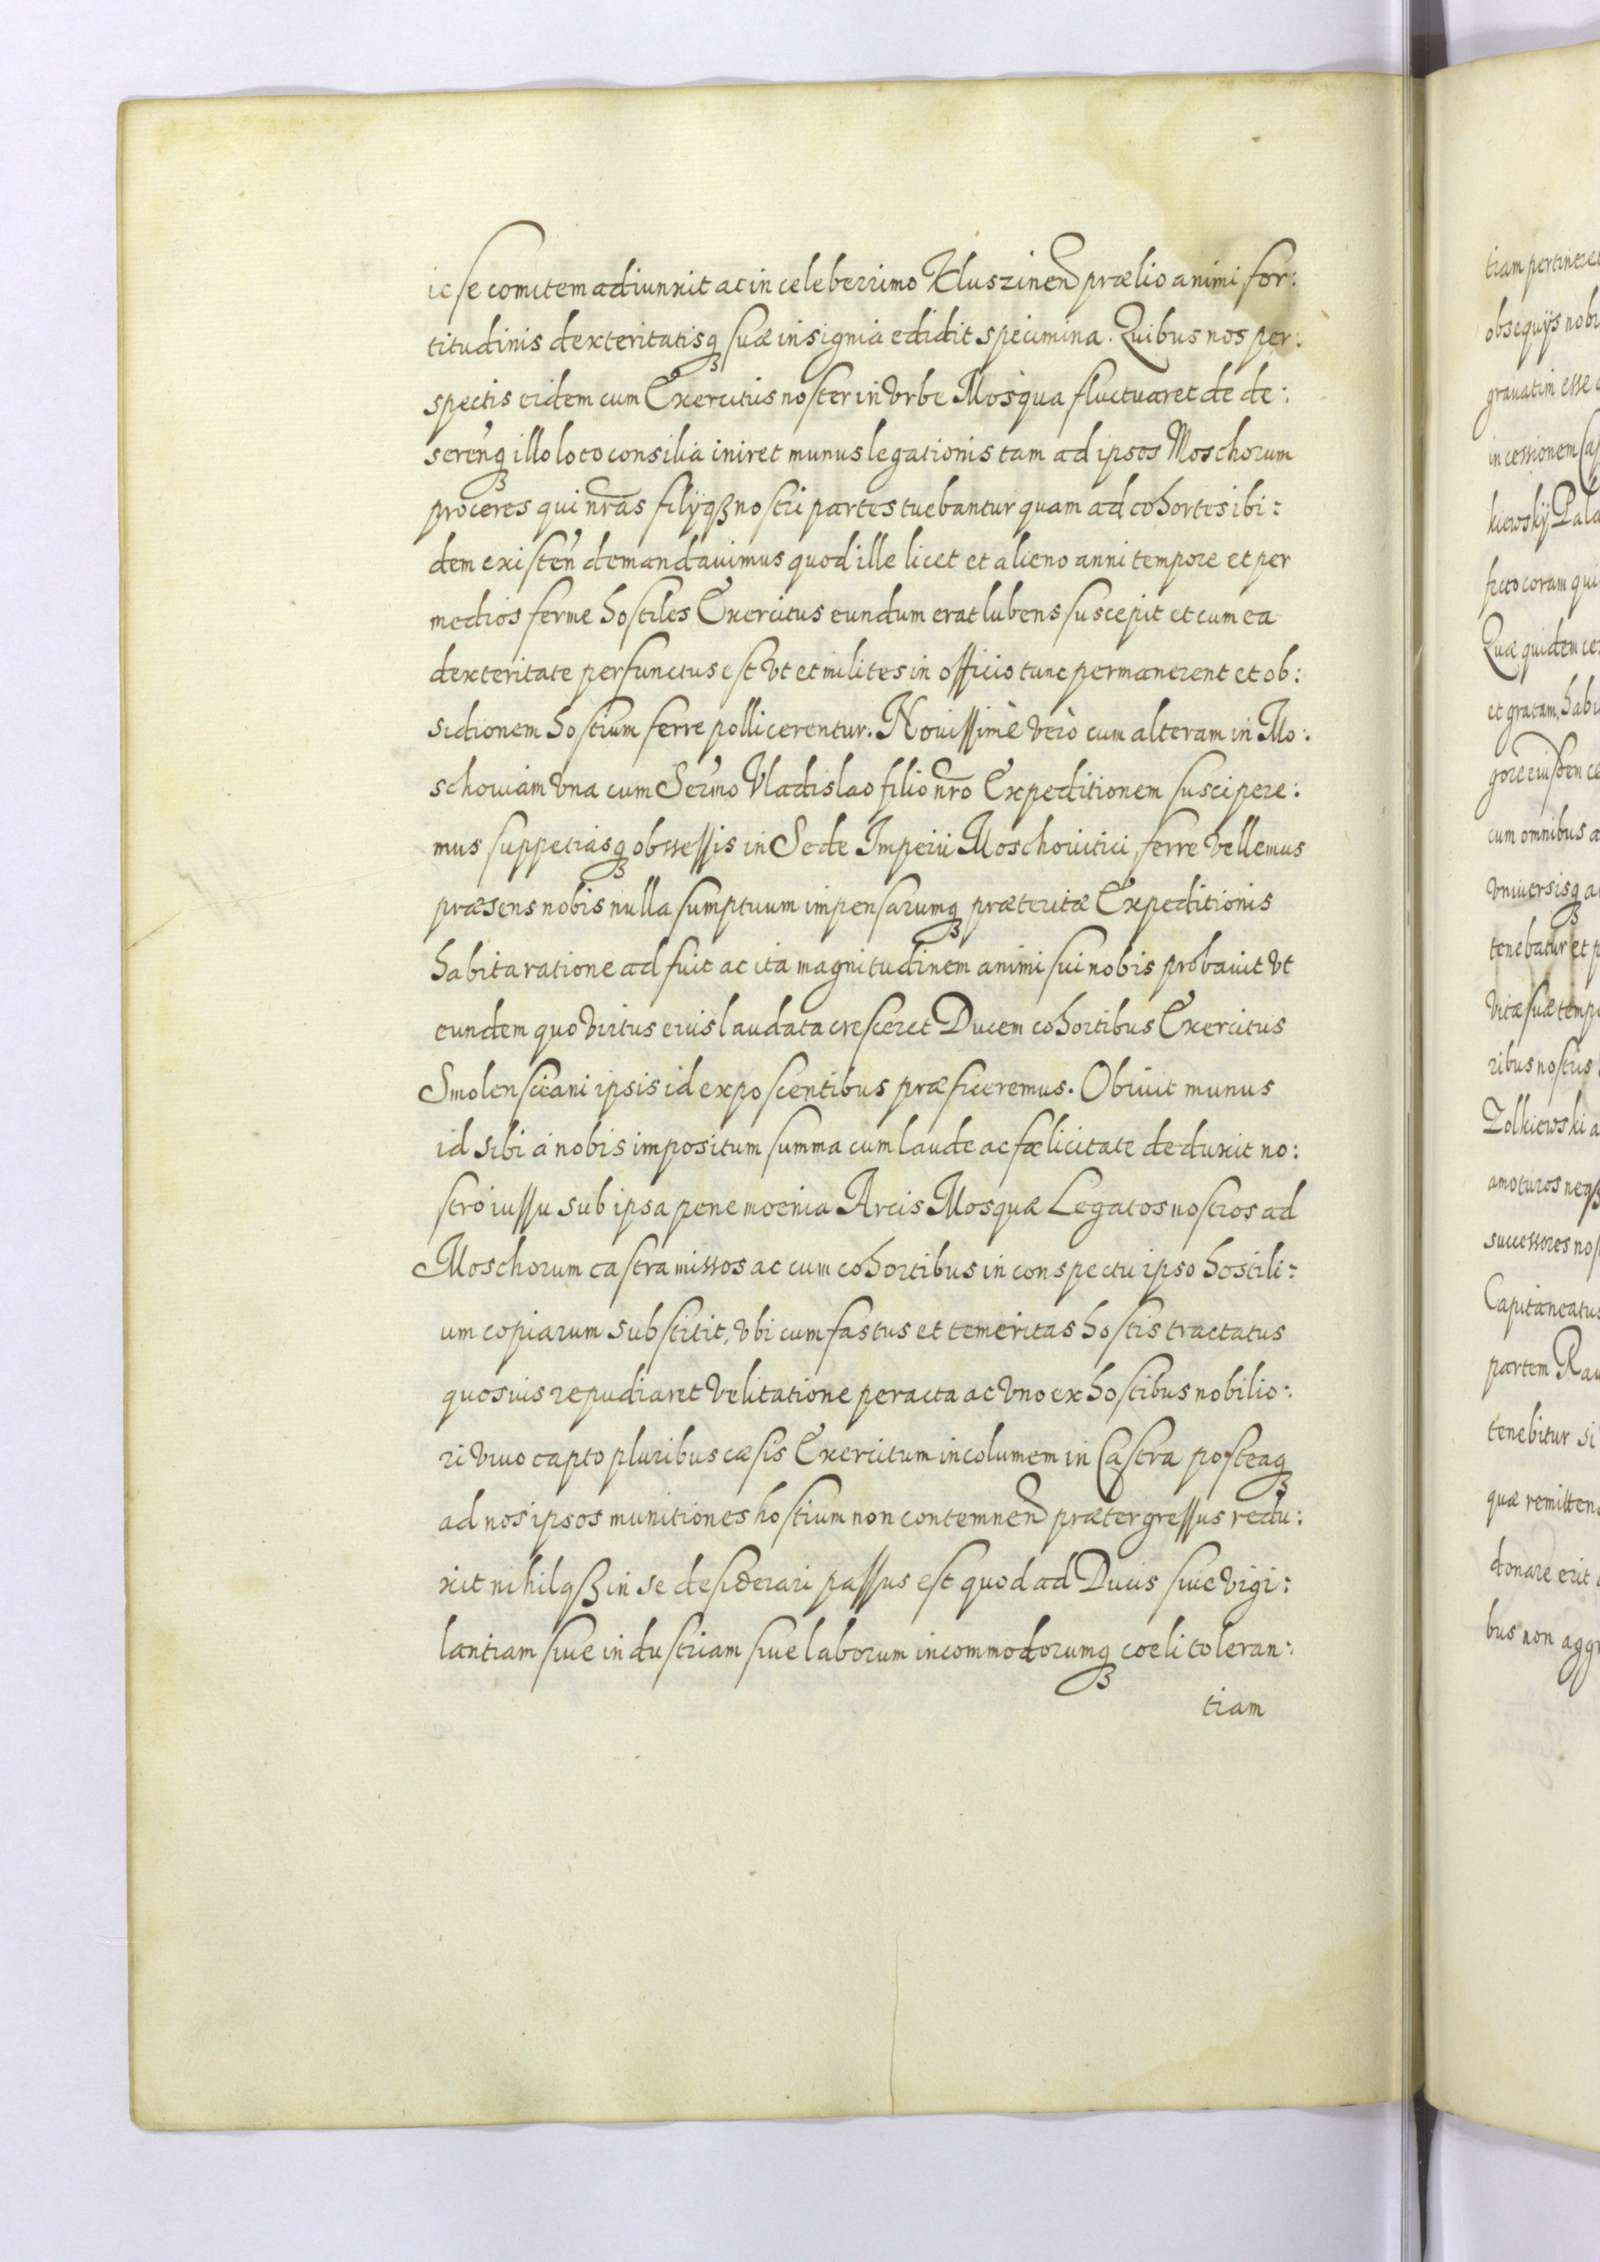 ic se comitem adiunxit ac in celeberrimo Kluszinen prælio animi for:
titudinis dexteritatisq suæ insignia edidit specimina. Quibus nos per:
spectis eidem cum Exercitus noster in Vrbe Mosqua fluctuaret de de:
serenq illo loco consilia iniret munus legationis tam ad ipsos Moschorum
proceres qui nras filÿq nostri partes tuebantur quam ad cohortes ibi:
dem existen demandavimus quod ille licet et alieno anni tempore et per
medios ferme hostiles Exercitus eundum erat lubens suscepit et cum ea
dexteritate perfunctus est vt et milites in officio tunc permanerent et ob:
sidionem hostium ferre pollicerentur. Novissimè verò cum alteram in Mo:
schoviam vna cum Sermo Vladislao filio nro Expeditionem suscipere:
mus suppetiasq obsessis in Sede Imperii Moschovitici, ferre vellemus
præsens nobis nulla sumptuum impensarumq præteritæ Expeditionis
habita ratione ad fuit ac ita magnitudinem animi sui nobis probavit vt
eundem quo virtus eius laudata cresceret Ducem cohortibus Exercitus
Smolensceani ipsis id exposcentibus præficeremus. Obivit munus
id sibi a nobis impositum summa cum laude ac fælicitate deduxit no:
stro iussu sub ipsa pene moenia Arcis Mosquæ Legatos nostros ad
Moschorum castra missos ac cum cohortibus in conspectu ipso hostili:
um copiarum substitit, vbi cum fastus et temeritas hostis tractatus
quosvis repudiaret velitatione peracta ac vno ex hostibus nobilio:
ri vivo capto pluribus cæsis Exercitum incolumem in Castra posteaq
ad nos ipsos munitiones hostium non contemnen prætergressus redu:
xit nihilq in se desiderari passus est quod ad Ducis sive vigi:
lantiam sive industriam sive laborum incommodorumq coeli toleran:
tiam
tiam pertineret
obsequÿs nobi
gravatim esse
in cessionem Cas
kiewskÿ Pala
fecto coram qui
Quæ quidem ce
et gratam habu
gore eiusden ce
cum omnibus a
vniversisq a
tenebatur et p
vitæ suæ temp
ribus nostris
Zolkiewski a
amoturos neq
successores nos
Capitaneatus
partem Rav
tenebitur si
quæ remitten
donare erit
bus non aggr